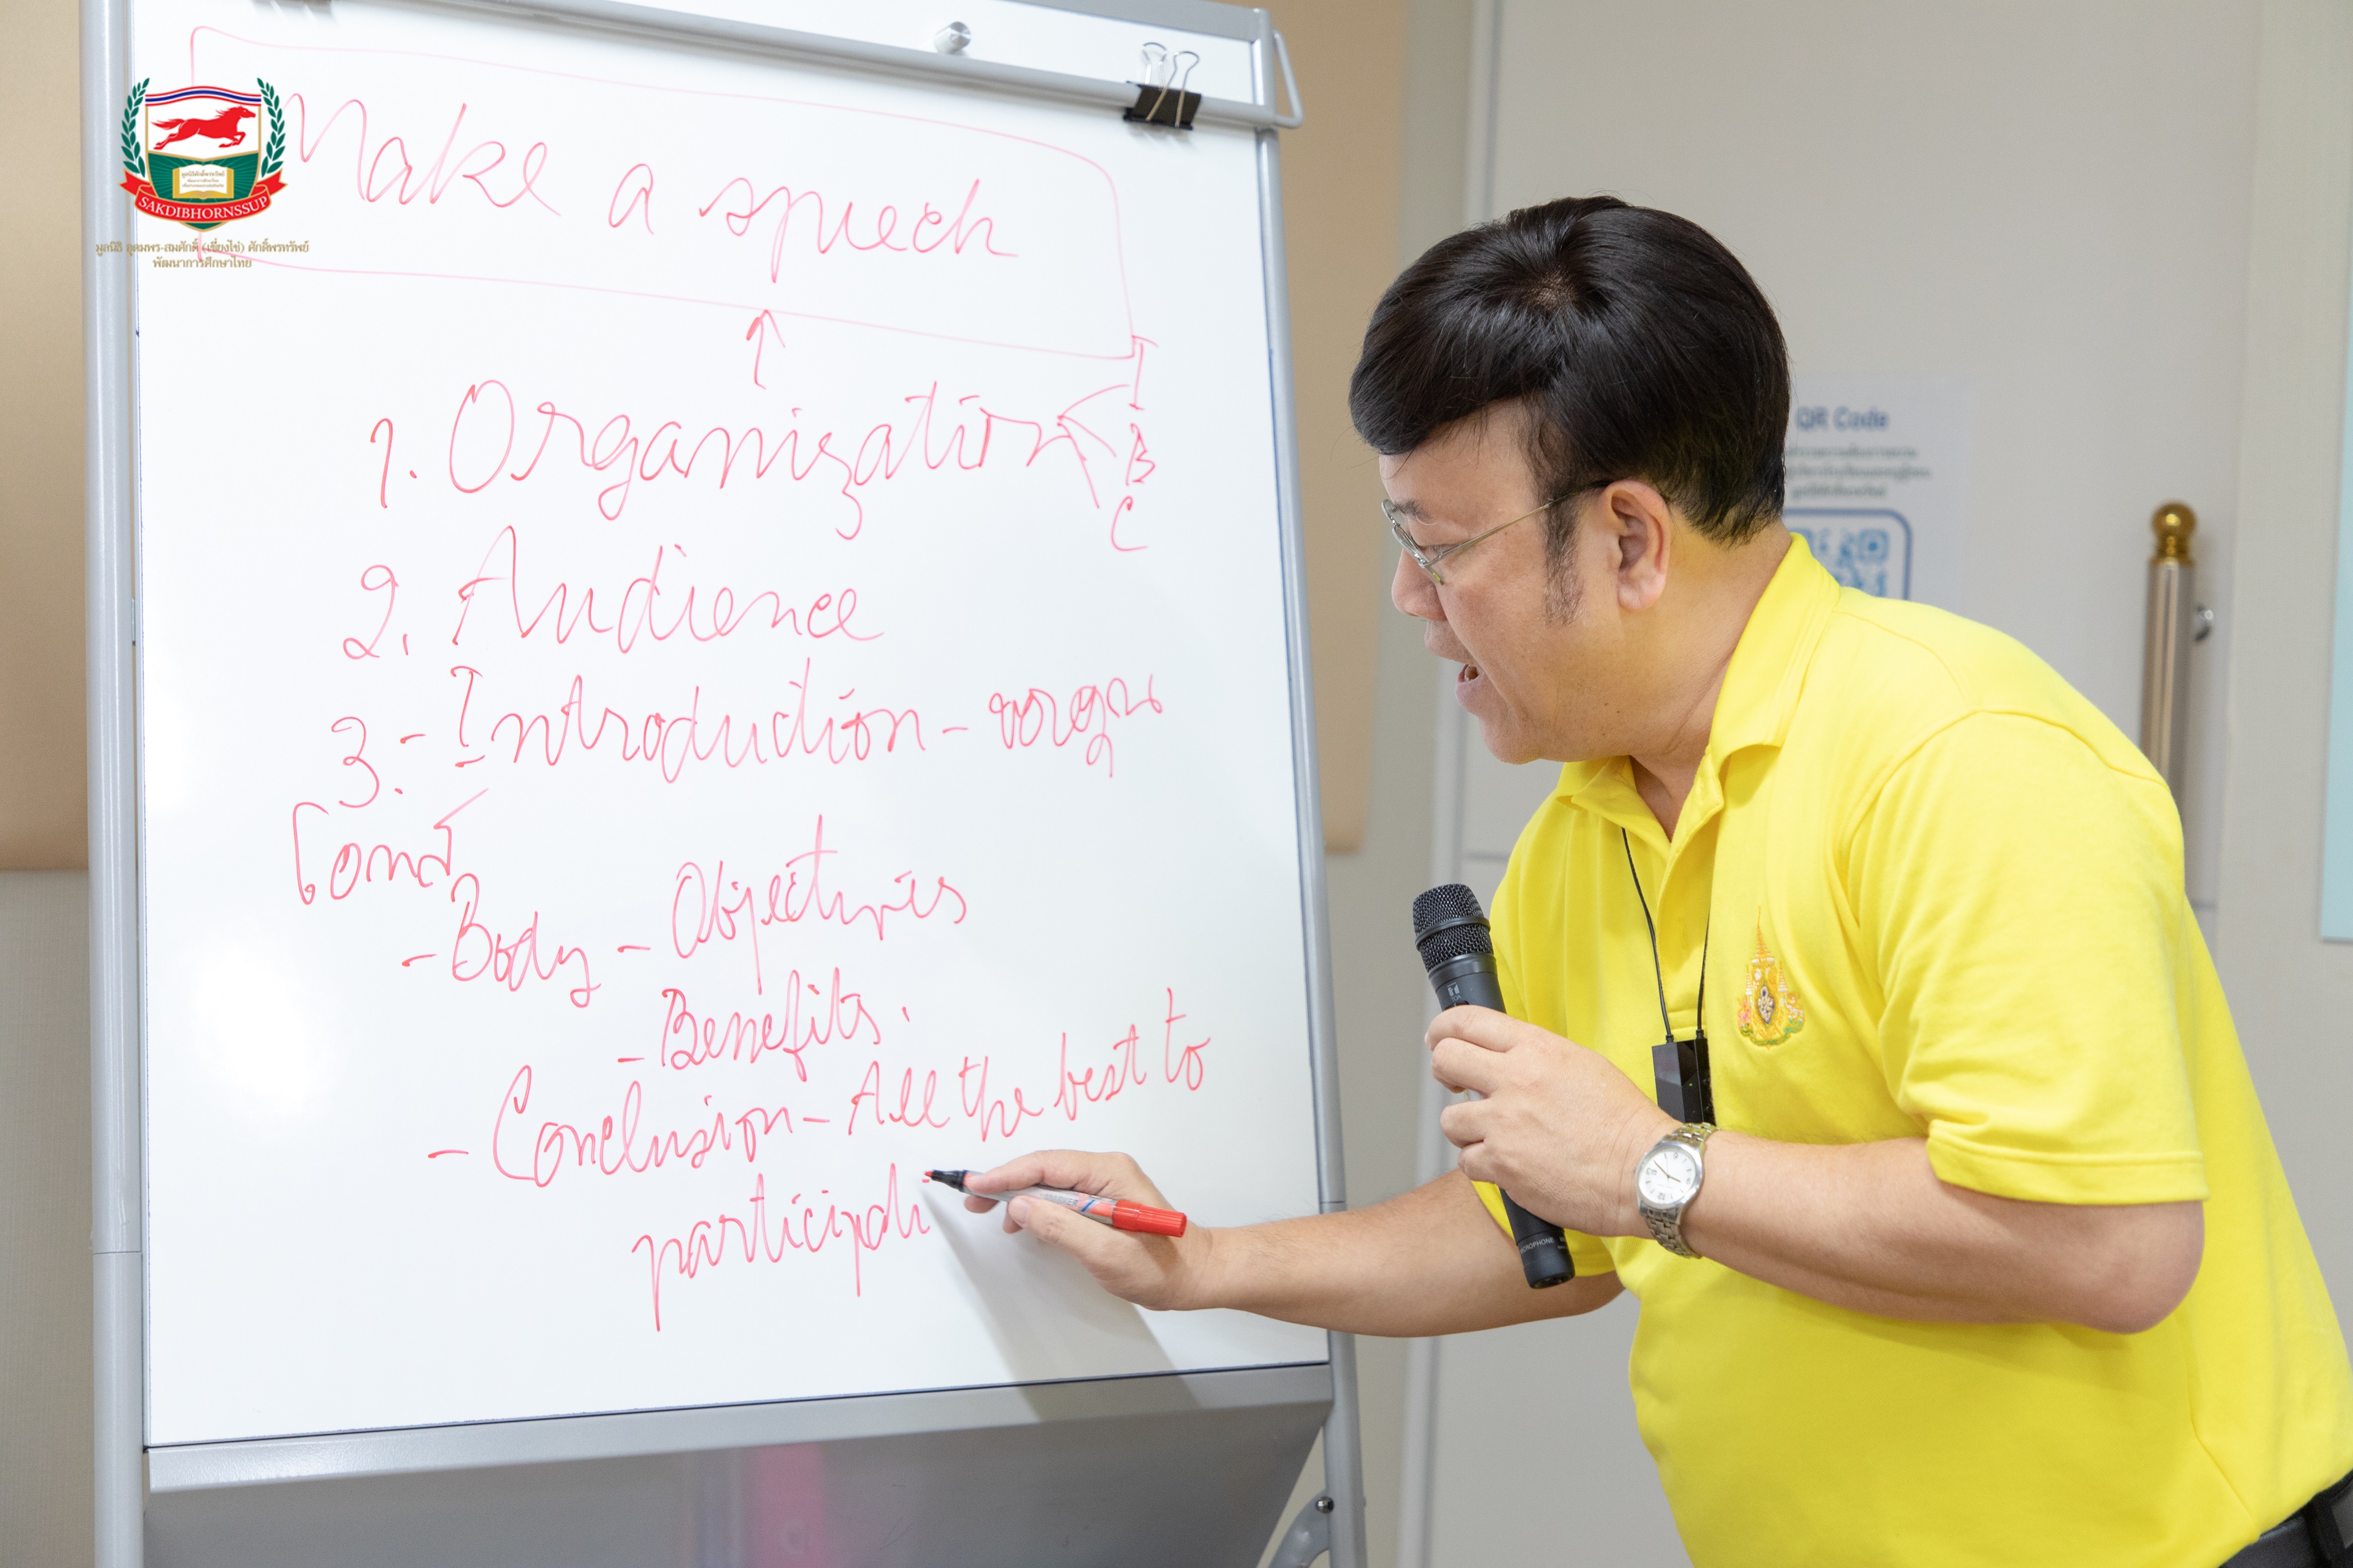 SAKDIBHORNSSUP
มูลนิธิ อุดมพร-สมศักดิ์ (เขี่ยงไข่) ศักดิ์พรทรัพย์
พัฒนาการศึกษาไทย
Make a speech
1. Organization
I
B
C
2. Audience
3. - Introduction - ขอบคุณ
โอกาส
- Body - Objectives
- Benefits.
- Conclusion - All the best to
participati
QR Code
MICROPHONE